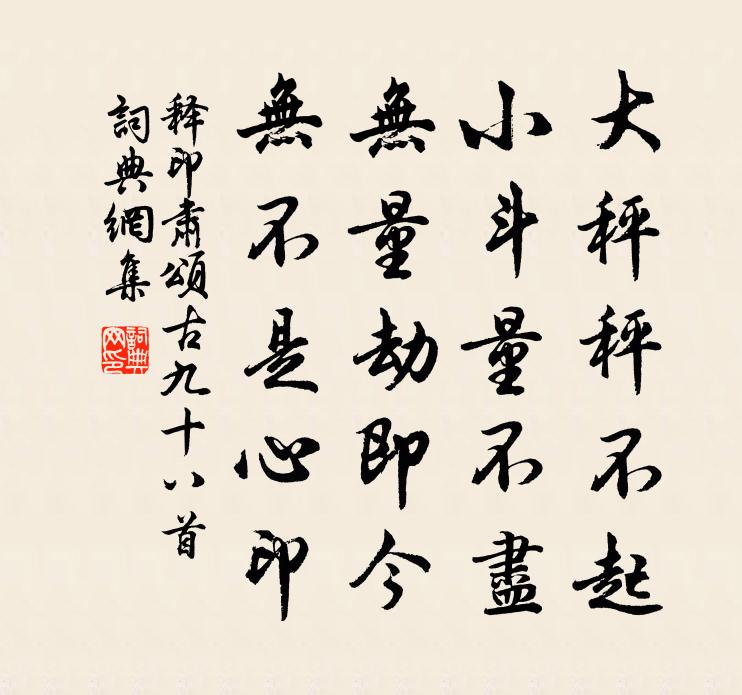 大秤秤不起
小斗量不盡
無量劫即今
無不是心印
释印肃頌古九十八首
詞典網集
詞典網印